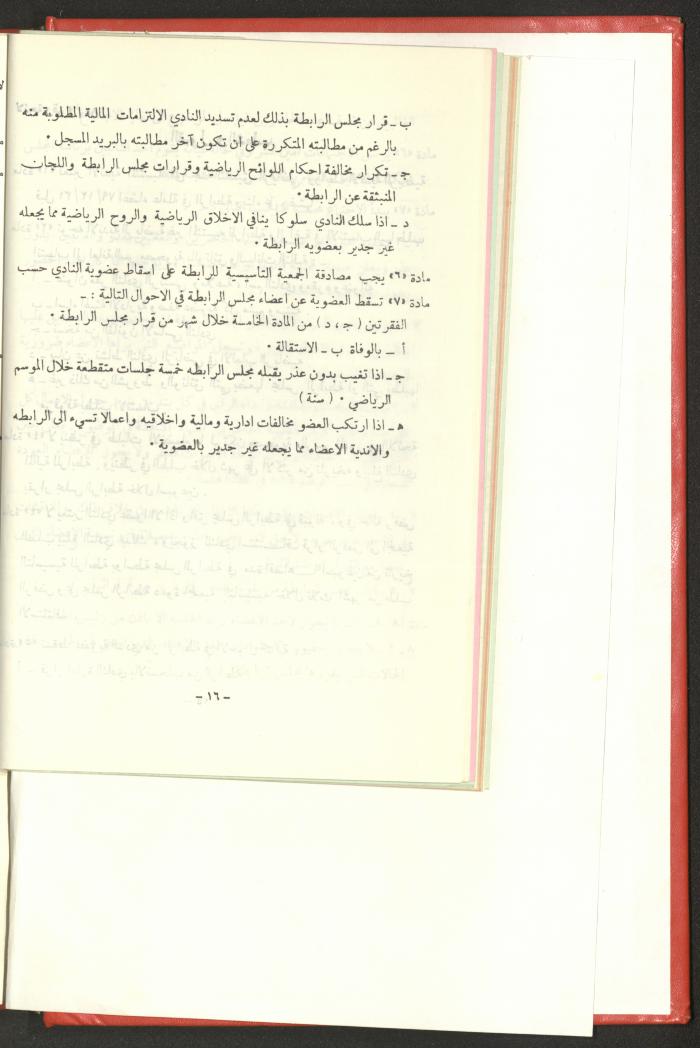 ب ـ قرار مجلس الرابطة بذلك لعدم تسديد النادي الالتزامات المالية المطلوبة منه
بالرغم من مطالبته المتكررة على ان تكون آخر مطالبته بالبريد المسجل ٠
جـ ـ تكرار مخالفة احكام اللوائح الرياضية وقرارات مجلس الرابطة واللجان
المنبثقة عن الرابطة ٠
د ـ اذا سلك النادي سلوكا ينافي الاخلاق الرياضية والروح الرياضية مما يجعله
غير جدير بعضويه الرابطة ٠
مادة «٦» يجب مصادقة الجمعية التأسيسية للرابطة على اسقاط عضوية النادي حسب
مادة «٧» تسقط العضوية عن اعضاء مجلس الرابطة في الاحوال التالية : ـ
الفقرتين ( جـ ، د ) من المادة الخامسة خلال شهر من قرار مجلس الرابطة ٠
أ ـ بالوفاة ب ـ الاستقالة ٠
جـ ـ اذا تغيب بدون عذر يقبله مجلس الرابطه خمسة جلسات متقطعة خلال الموسم
الرياضي ٠ ( سنة )
هـ ـ اذا ارتكب العضو مخالفات ادارية ومالية واخلاقيه واعمالا تسيء الى الرابطه
والاندية الاعضاء مما يجعله غير جدير بالعضوية ٠
ـ ١٦ ـ